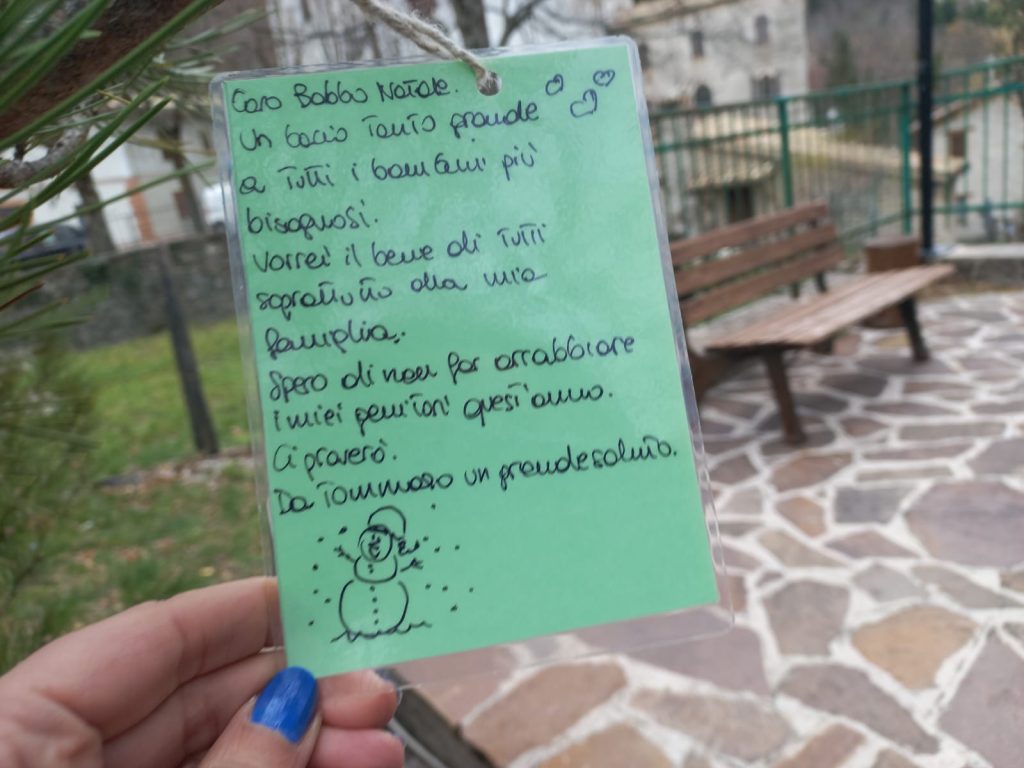 Caro Babbo Natale.
Un bacio tanto grande
a tutti i bambini più
bisognosi.
Vorrei il bene di tutti
soprattutto alla mia
famiglia.
Spero di non far arrabbiare
i miei genitori quest'anno.
Ci proverò.
Da Tommaso un grande saluto.